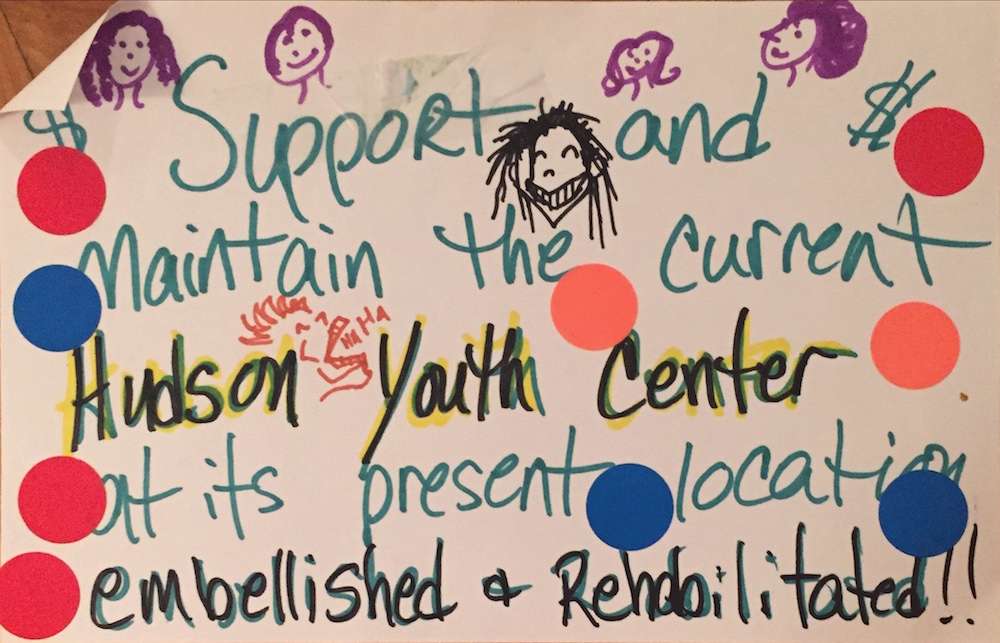 $ Support and $
maintain the current
Hudson HA HA Youth Center
at its present location
embellished & Rehabilitated!!